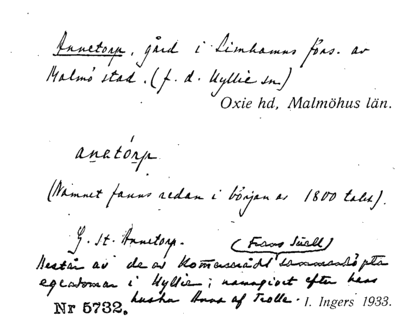 Annetorp, gård i Limhamns förs. av
Malmö stad. (f. d. Hyllie sn.)
Oxie hd, Malmöhus län.
anətórp
(Namnet fanns redan i början av 1800 talet).
G. st. Annetorp. (Frans Suell)
Består av de av Kommerserådet sammanköpta
egendomar i Hyllie; namngivet efter hans
hustru Anna af Trolle.
Nr 5732. I. Ingers 1933.